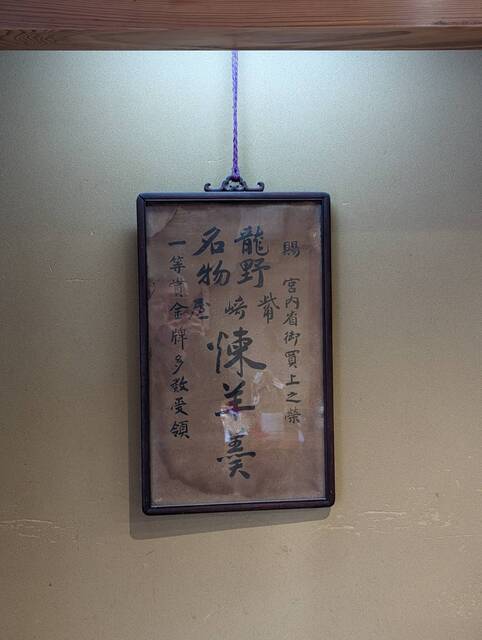 賜 宮内省御買上之榮
龍野
名物
觜崎屋
煉羊羹
一等賞金牌多数受領